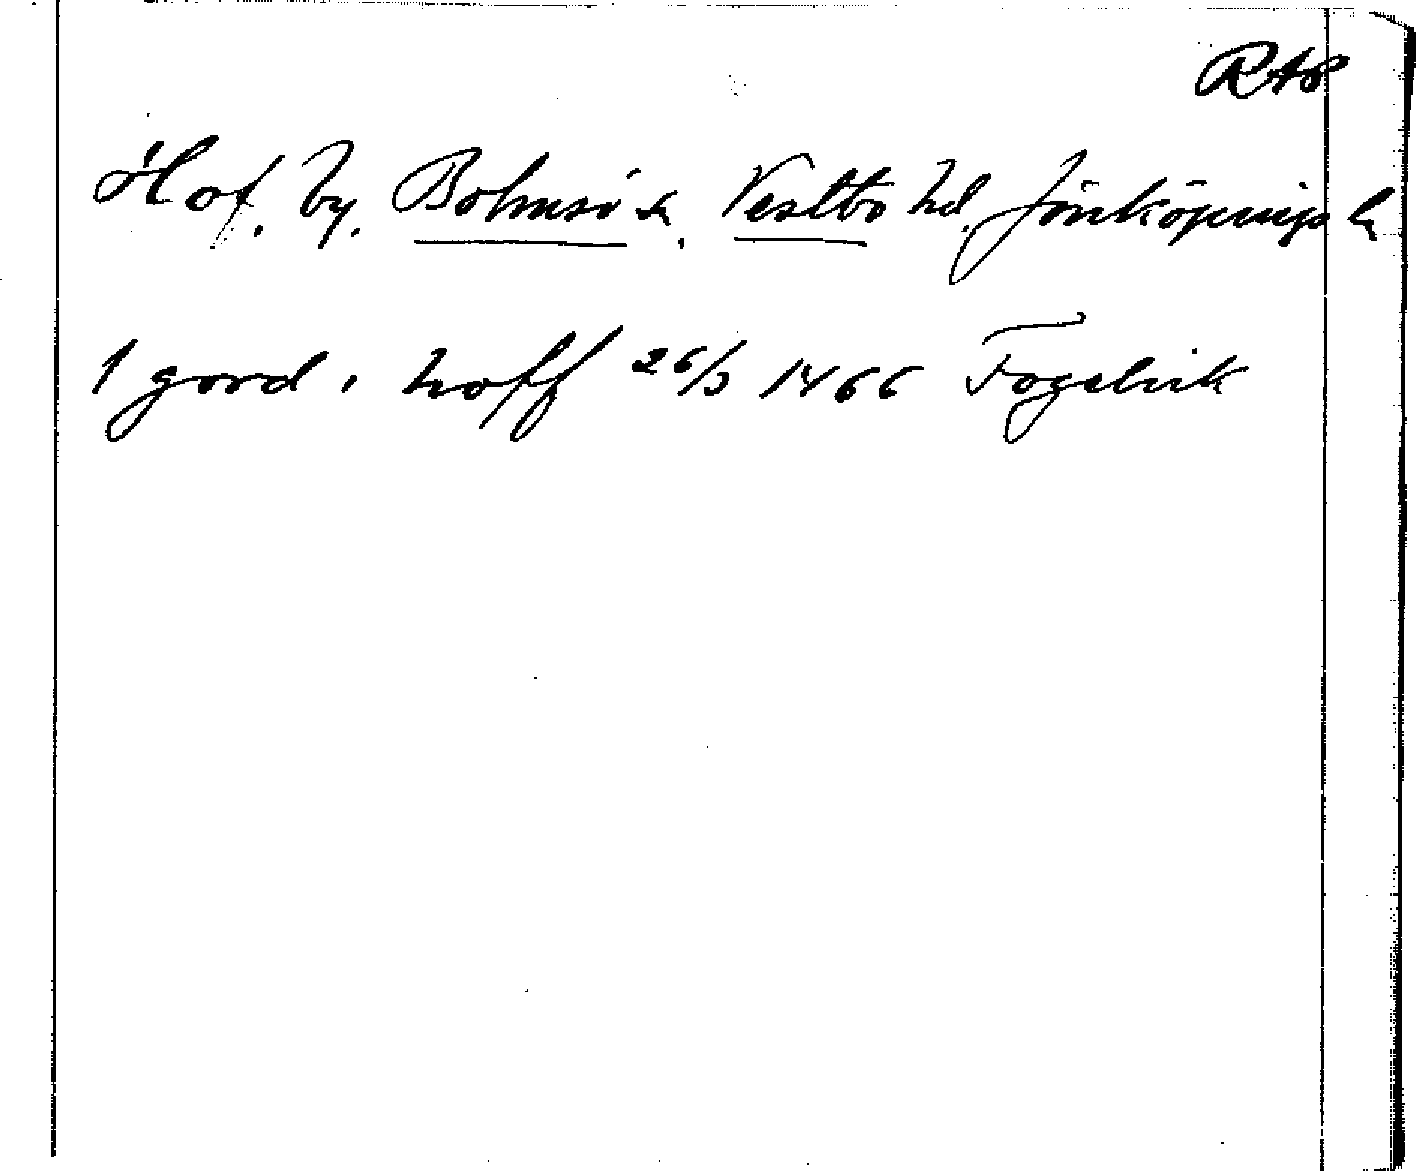 RAP
Hof. by. Bolmsö sn. Vestbo hd. Jönköpings ln
1 gord i hoff 26/3 1466 Fogelvik